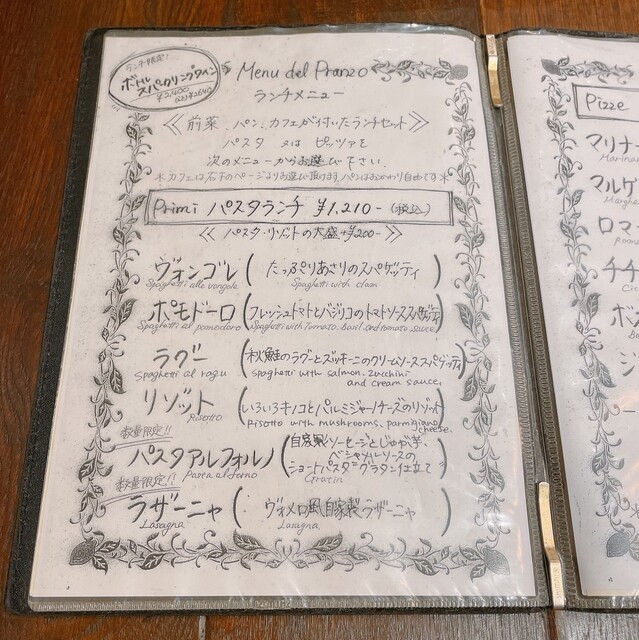 ランチ限定!
ボトル
スパークリングワイン
¥2,400
(込¥2640)
Menu del Pranzo
ランチメニュー
≪前菜、パン、カフェが付いたランチセット≫
パスタ 又は ピッツァを
次のメニューからお選び下さい.
*カフェは右下のページよりお選び頂けます。パンはおかわり自由です*
Primi パスタランチ ¥1,210- (税込)
≪パスタ・リゾットの大盛+¥200-≫
ヴォンゴレ (たっぷりあさりのスパゲッティ)
Spaghetti alle vongole Spaghetti with clam
ポモドーロ (フレッシュトマトとバジリコのトマトソーススパゲッティ)
Spaghetti al pomodoro Spaghetti with Tomato, Basil and tomato sauce
ラグー (秋鮭のラグーとズッキーニのクリームソーススパゲッティ)
Spaghetti al ragu spaghetti with salmon, zucchini
and cream sauce,
リゾット (いろいろキノコとパルミジャーノチーズのリゾット)
Risotto Risotto with mushrooms, parmigiano
cheese.
数量限定!!
パスタアルフォルノ (自家製ソーセージとじゃが芋、
ベシャメルソースの
ショートパスタ グラタン仕立て)
Pasta al forno Gratin
数量限定!!
ラザーニャ (ヴォメロ風自家製ラザーニャ)
Lasagna Lasagna
Pizze
マリナー
Marinar
マルゲ
Marghe
ロマー
チチ
Cic
ボス
Bo
シ